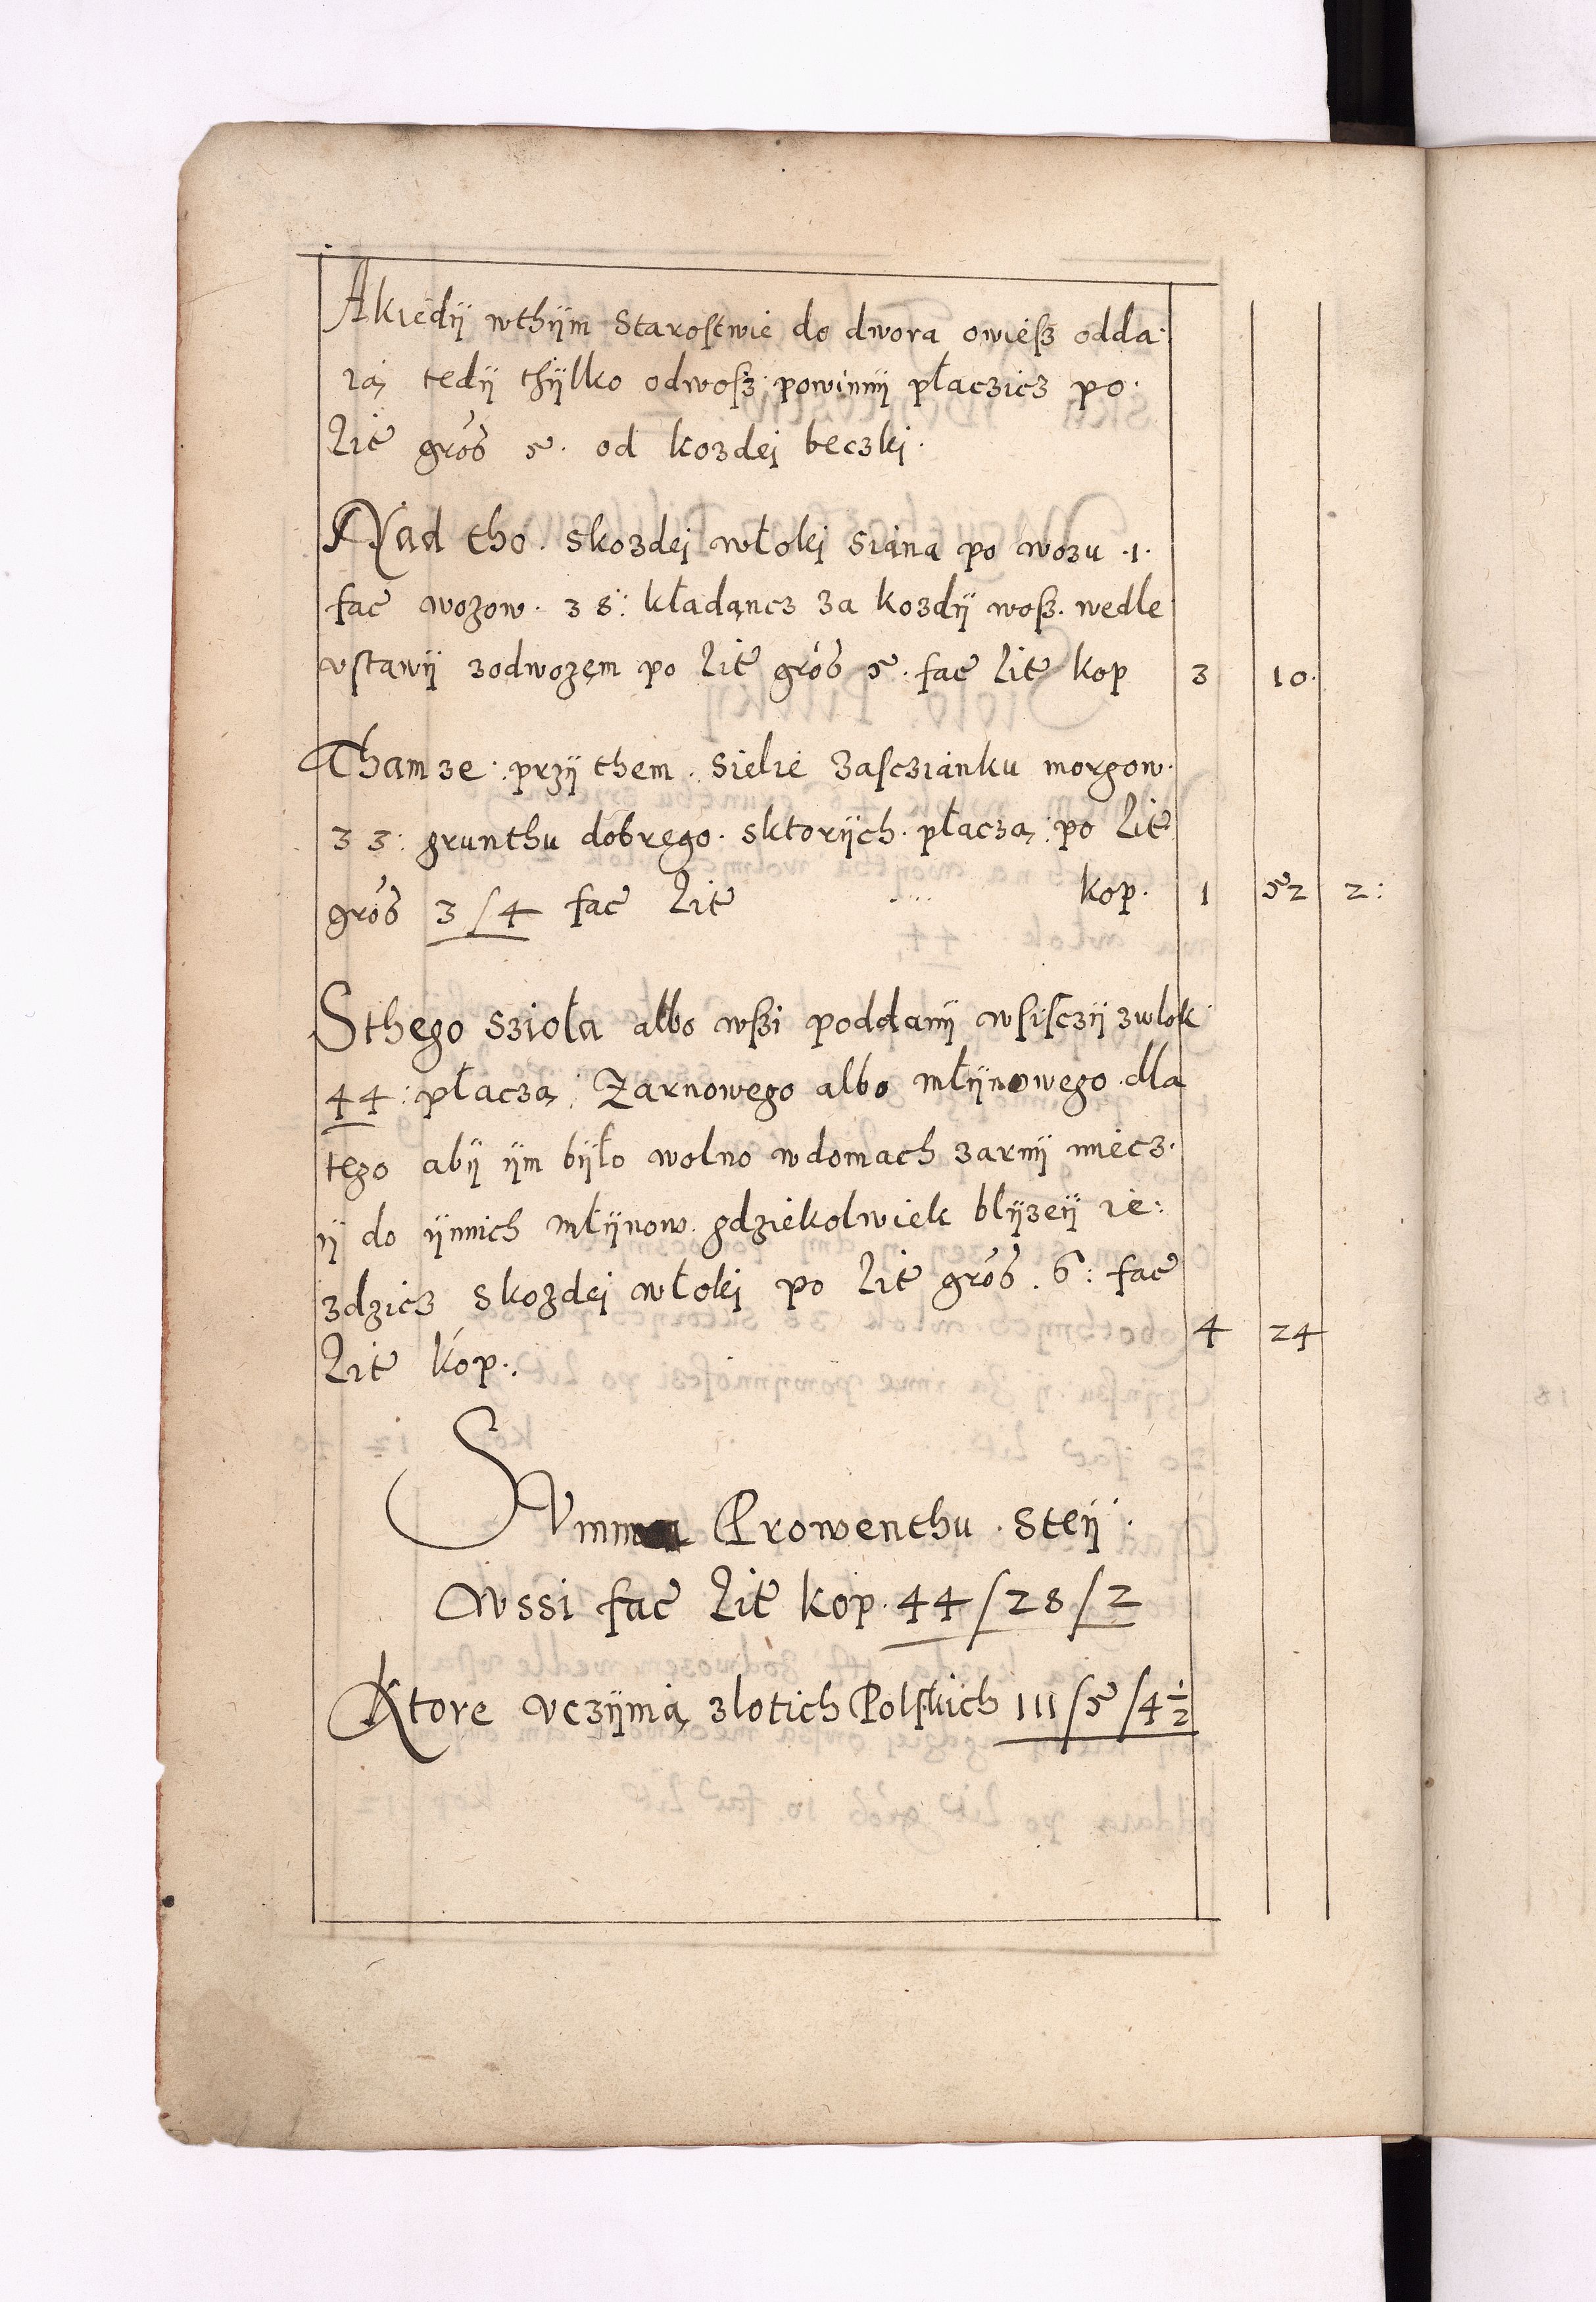 Akiedÿ wthÿm Starostwie do dwora owiesz odda·
ią, tedÿ thÿlko odwosz powinnÿ płaczicz po·
Lit̃ gros̃ 5· od kozdej beczkj·
Nad tho· skozdej włokj siana po wozu ·1·
fac̃ wozow· 38: kładącz za kozdÿ wosz· wedle
vstawÿ zodwozem po Lit̃ gros̃ 5· fac̃ Lit̃ kop 3 10·
Thamze· przÿ them· sielie Zascziankų morgow·
33: grunthu dobrego· sktorÿch· płaczą: po Lit̃
gros̃ 3/4 fac̃ Lit̃ ···· kop· 1 52 2:
Sthego sziola albo wszi poddanÿ wsisczÿ zwlok
44: płaczą: Zarnowego albo młÿnowego· dla
tego abÿ ÿm bÿło wolno wdomach zarnÿ miecz·
ÿ do ÿnnich młÿnow· gdziekolwiek blÿzeÿ ie:
zdzicz skozdej włokj po Lit̃ gros̃ · 6: fac̃
Lit̃ kop·: 4 24
SVmma Prowenthu · steÿ·
wssi fac̃ Lit̃ kop· 44/28/2
Ktore vczÿnią, zlotich Polskich 111/5/4½